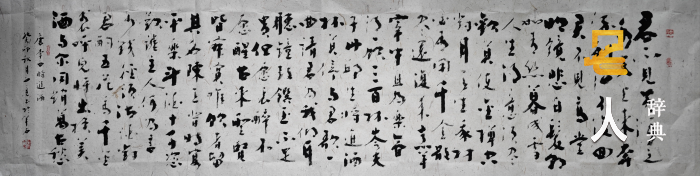 君不見黃河之
水天上來奔
君不見高堂
明鏡悲白髮朝
如青絲暮成雪
人生得意須盡
歡莫使金樽空
對月天生我材
必有用千金散
盡還復來烹羊
宰牛且為樂會
須一飲三百杯岑夫
子丹邱生將進酒
杯莫停與君歌一
曲請君為我傾耳
聽鐘鼓饌玉不足
貴但願長醉不
願醒古來聖賢
皆寂寞惟有飲者留
其名陳王昔時宴
平樂斗酒十千恣
歡謔主人何為言
少錢徑須沽取對
君酌五花馬千金
裘呼兒將出換美
酒與爾同銷萬古愁
唐李白將進酒
名人
辞典